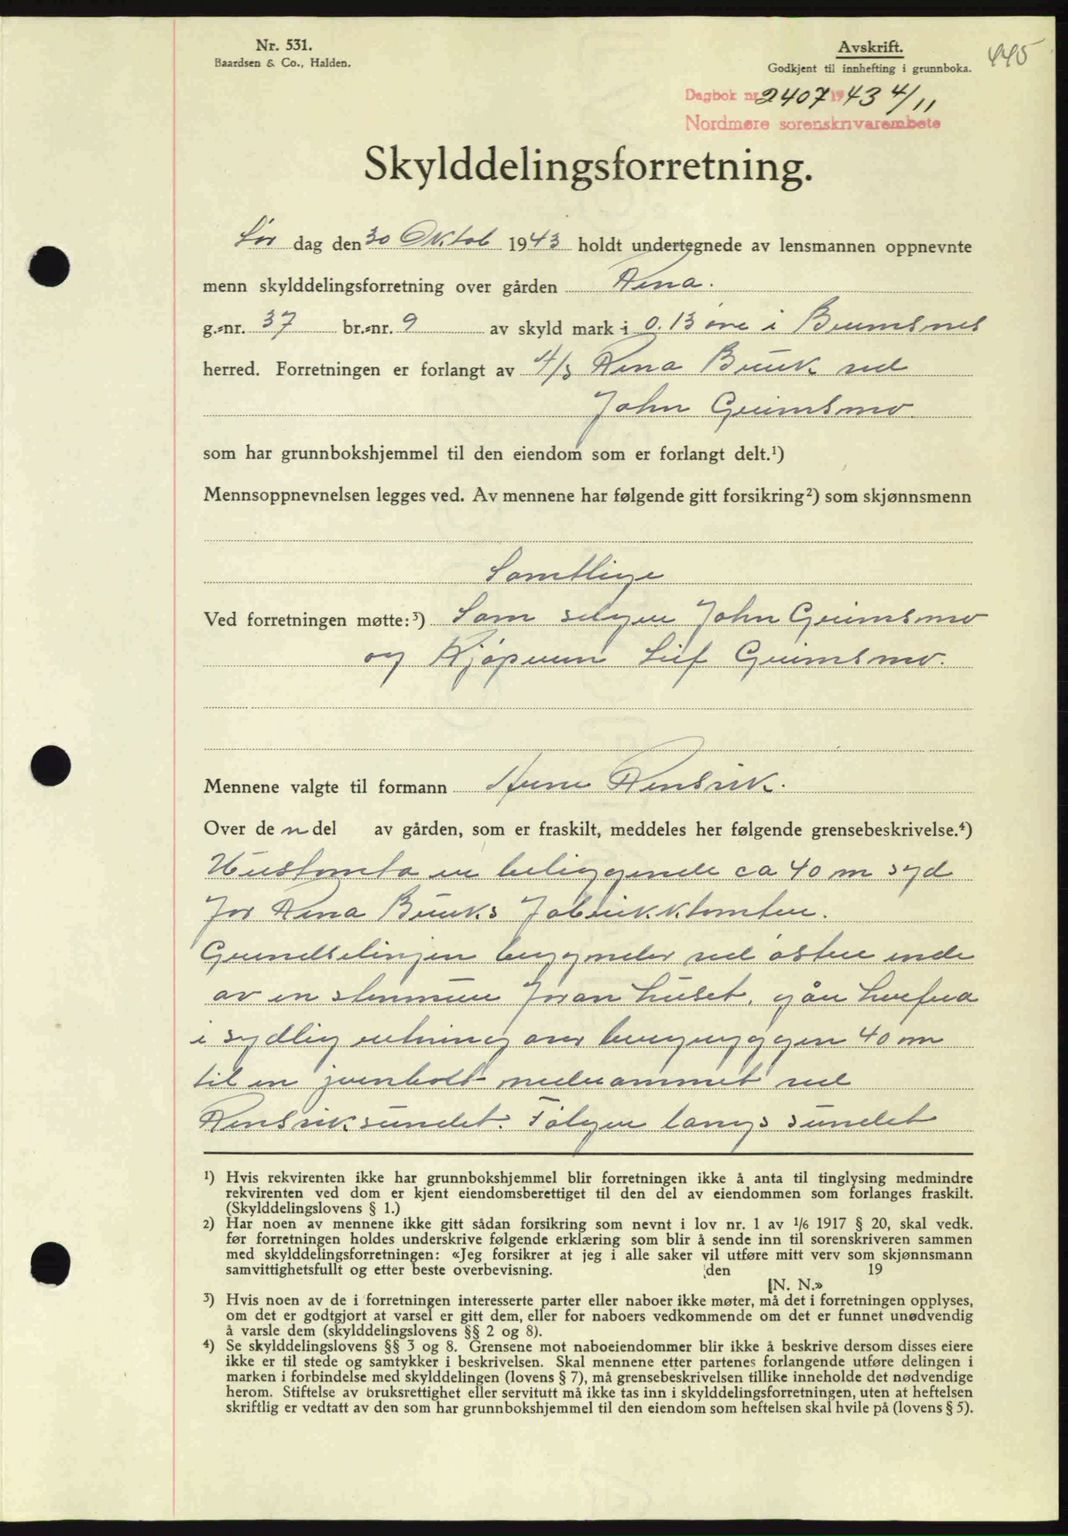 Nr. 531.
Baardsen & Co., Halden.
Avskrift.
Godkjent til innhefting i grunnboka.
445
Dagbok nr. 2407 1943 4/11
Nordmøre sorenskrivarembete
Skylddelingsforretning.
Lør dag den 30 Oktob 1943 holdt undertegnede av lensmannen oppnevnte
menn skylddelingsforretning over gården Rena.
g.-nr. 37 br.-nr. 9 av skyld mark i 0.13 øre i Bremsnes
herred. Forretningen er forlangt av A/S Rena Bruk ved
John Grimsmo.
som har grunnbokshjemmel til den eiendom som er forlangt delt.¹)
Mennsoppnevnelsen legges ved. Av mennene har følgende gitt forsikring²) som skjønnsmenn
Samtlige
Ved forretningen møtte:³) Som selger John Grimsmo
og Kjøperen Leif Grimsmo.
Mennene valgte til formann Arne Rensvik.
Over de n del av gården, som er fraskilt, meddeles her følgende grensebeskrivelse.⁴)
Hustomta er beliggende ca 40 m syd
for Rena Bruks Fabrikktomten.
Grendselinjen begynder ved østre ende
av en stenmur foran huset, går herfra
i sydlig retning over bergryggen 40 m
til en jernbolt nedrammet ved
Rensviksundet. Følger langs sundet
¹) Hvis rekvirenten ikke har grunnbokshjemmel blir forretningen ikke å anta til tinglysing medmindre
rekvirenten ved dom er kjent eiendomsberettiget til den del av eiendommen som forlanges fraskilt.
(Skylddelingslovens § 1.)
²) Har noen av mennene ikke gitt sådan forsikring som nevnt i lov nr. 1 av 1/6 1917 § 20, skal vedk.
før forretningen holdes underskrive følgende erklæring som blir å sende inn til sorenskriveren sammen
med skylddelingsforretningen: «Jeg forsikrer at jeg i alle saker vil utføre mitt verv som skjønnsmann
samvittighetsfullt og etter beste overbevisning. den 19
[N. N.»
³) Hvis noen av de i forretningen interesserte parter eller naboer ikke møter, må det i forretningen opplyses,
om det er godtgjort at varsel er gitt dem, eller for naboers vedkommende om det er funnet unødvendig
å varsle dem (skylddelingslovens §§ 2 og 8).
⁴) Se skylddelingslovens §§ 3 og 8. Grensene mot naboeiendommer blir ikke å beskrive dersom disses eiere
ikke er til stede og samtykker i beskrivelsen. Skal mennene etter partenes forlangende utføre delingen i
marken i forbindelse med skylddelingen (lovens § 7), må grensebeskrivelsen tillike inneholde det nødvendige
herom. Stiftelse av bruksrettighet eller servitutt må ikke tas inn i skylddelingsforretningen, uten at heftelsen
skriftlig er vedtatt av den som har grunnbokshjemmel til den eiendom som heftelsen skal hvile på (lovens § 5).